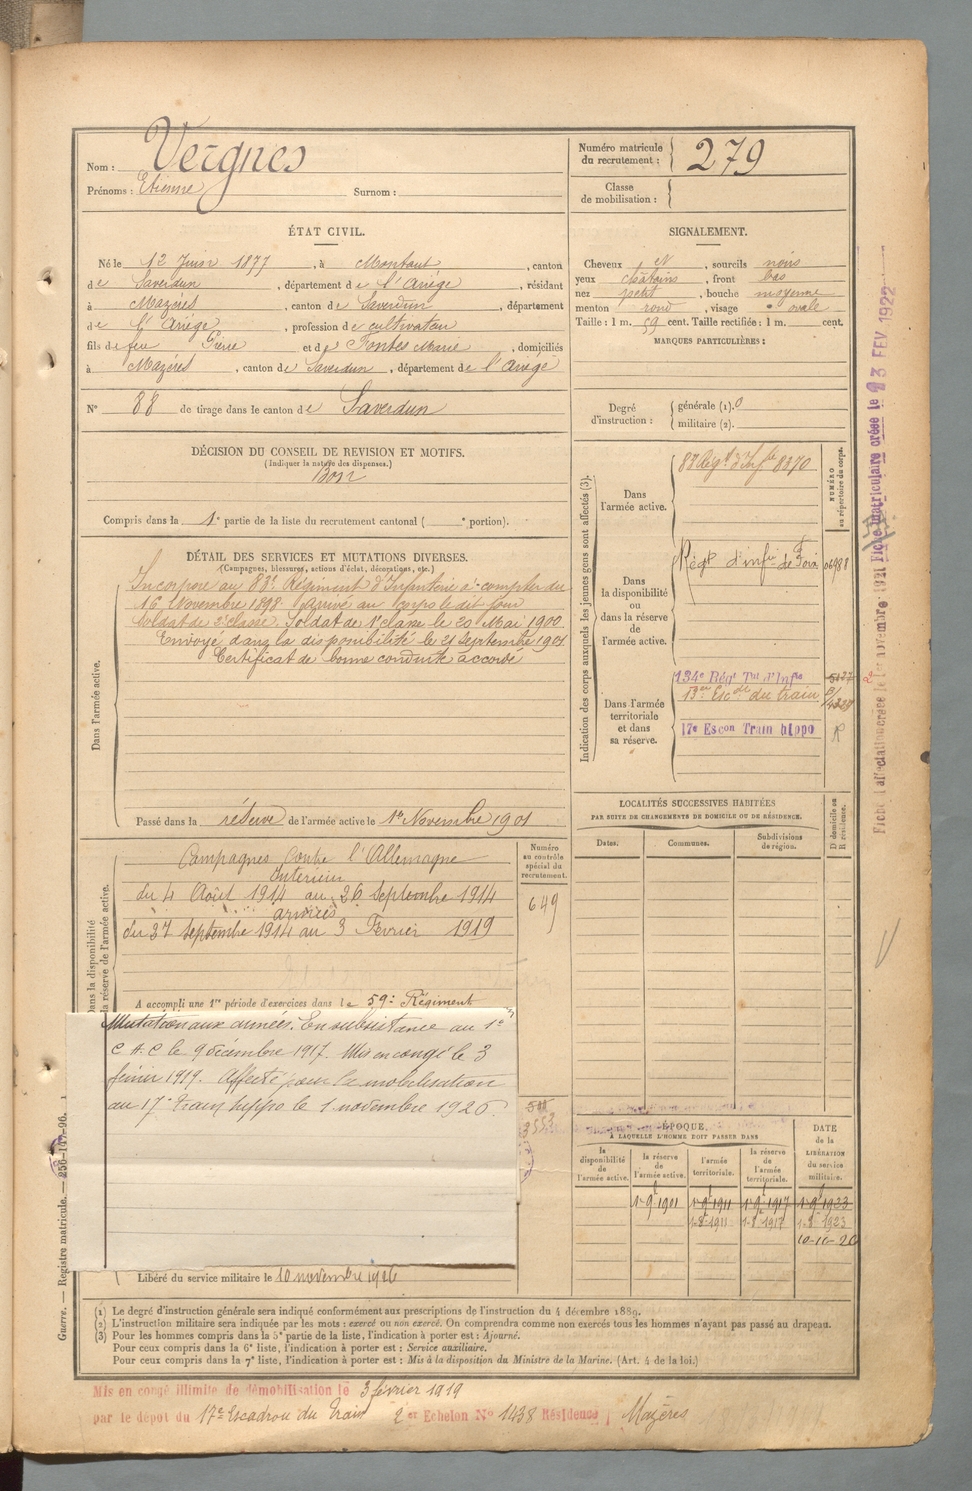 Nom : Vergnes
Prénoms : Etienne Surnom :
Numéro matricule
du recrutement : 279
Classe
de mobilisation :
ÉTAT CIVIL.
Né le 12 Juin 1877, à Montaut, canton
de Saverdun, département de l'Ariège, résidant
à Mazères, canton de Saverdun, département
de l'Ariège, profession de cultivateur
fils de feu Pierre et de Pontes Marie, domiciliés
à Mazères, canton de Saverdun, département de l'Ariège
N° 88 de tirage dans le canton de Saverdun
SIGNALEMENT.
Cheveux N, sourcils noirs
yeux châtains, front bas
nez petit, bouche moyenne
menton rond, visage ovale
Taille : 1 m. 59 cent. Taille rectifiée : 1 m. cent.
MARQUES PARTICULIÈRES :
Degré
d'instruction :
générale (1). 0
militaire (2).
DÉCISION DU CONSEIL DE REVISION ET MOTIFS.
(Indiquer la nature des dispenses.)
Bon
Compris dans la 1e partie de la liste du recrutement cantonal ( e portion).
DÉTAIL DES SERVICES ET MUTATIONS DIVERSES.
(Campagnes, blessures, actions d'éclat, décorations, etc.)
Dans l'armée active.
Incorporé au 83e Régiment d'Infanterie à compter du
16 Novembre 1898. Arrivé au corps le dit jour
Soldat de 2e classe. Soldat de 1e classe le 20 Mai 1900.
Envoyé dans la disponibilité le 21 Septembre 1901
Certificat de bonne conduite accordé
Passé dans la réserve de l'armée active le 1er Novembre 1901
Indication des corps auxquels les jeunes gens sont affectés (3).
NUMÉRO
au répertoire du corps.
Dans
l'armée active.
Dans
la disponibilité
ou
dans la réserve
de
l'armée active.
Régt d'infie de Foix
Dans l'armée
territoriale
et dans
sa réserve.
134e Régt Tal d'Infie
Esc du train
17e Escon Train hippo R
LOCALITÉS SUCCESSIVES HABITÉES
PAR SUITE DE CHANGEMENTS DE DOMICILE OU DE RÉSIDENCE.
Dates. Communes. Subdivisions
de région.
D domicile ou
R résidence.
Dans la disponibilité
la réserve de l'armée active.
Numéro
au contrôle
spécial du
recrutement.
649
Campagnes Contre l'Allemagne
Intérieur
du 4 Août 1914 au 26 Septembre 1914
armées
du 27 Septembre 1914 au 3 Février 1919
A accompli une 1re période d'exercices dans le 59e Régiment
Mutation aux armées. En subsistance au 1e
C A C le 9 décembre 1917. Mis en congé le 3
février 1919. Affecté pour la mobilisation
au 17e train hippo le 1 novembre 1926.
Libéré du service militaire le 10 novembre 1926
ÉPOQUE
À LAQUELLE L'HOMME DOIT PASSER DANS
la
disponibilité
de
l'armée active.
la réserve
de
l'armée active.
l'armée
territoriale.
la réserve
de
l'armée
territoriale.
DATE
de la
LIBÉRATION
du service
militaire.
1-8-1911 1-8-1917 1-8-1923
Guerre. — Registre matricule.
Fiche matriculaire créée le 23 FEV 1922
(1) Le degré d'instruction générale sera indiqué conformément aux prescriptions de l'instruction du 4 décembre 1889.
(2) L'instruction militaire sera indiquée par les mots : exercé ou non exercé. On comprendra comme non exercés tous les hommes n'ayant pas passé au drapeau.
(3) Pour les hommes compris dans la 5e partie de la liste, l'indication à porter est : Ajourné.
Pour ceux compris dans la 6e liste, l'indication à porter est : Service auxiliaire.
Pour ceux compris dans la 7e liste, l'indication à porter est : Mis à la disposition du Ministre de la Marine. (Art. 4 de la loi.)
Mis en congé illimité de démobilisation le 3 février 1919
par le dépôt du 17e Escadron du Train 2er Echelon N° 1438 Résidence Mazères